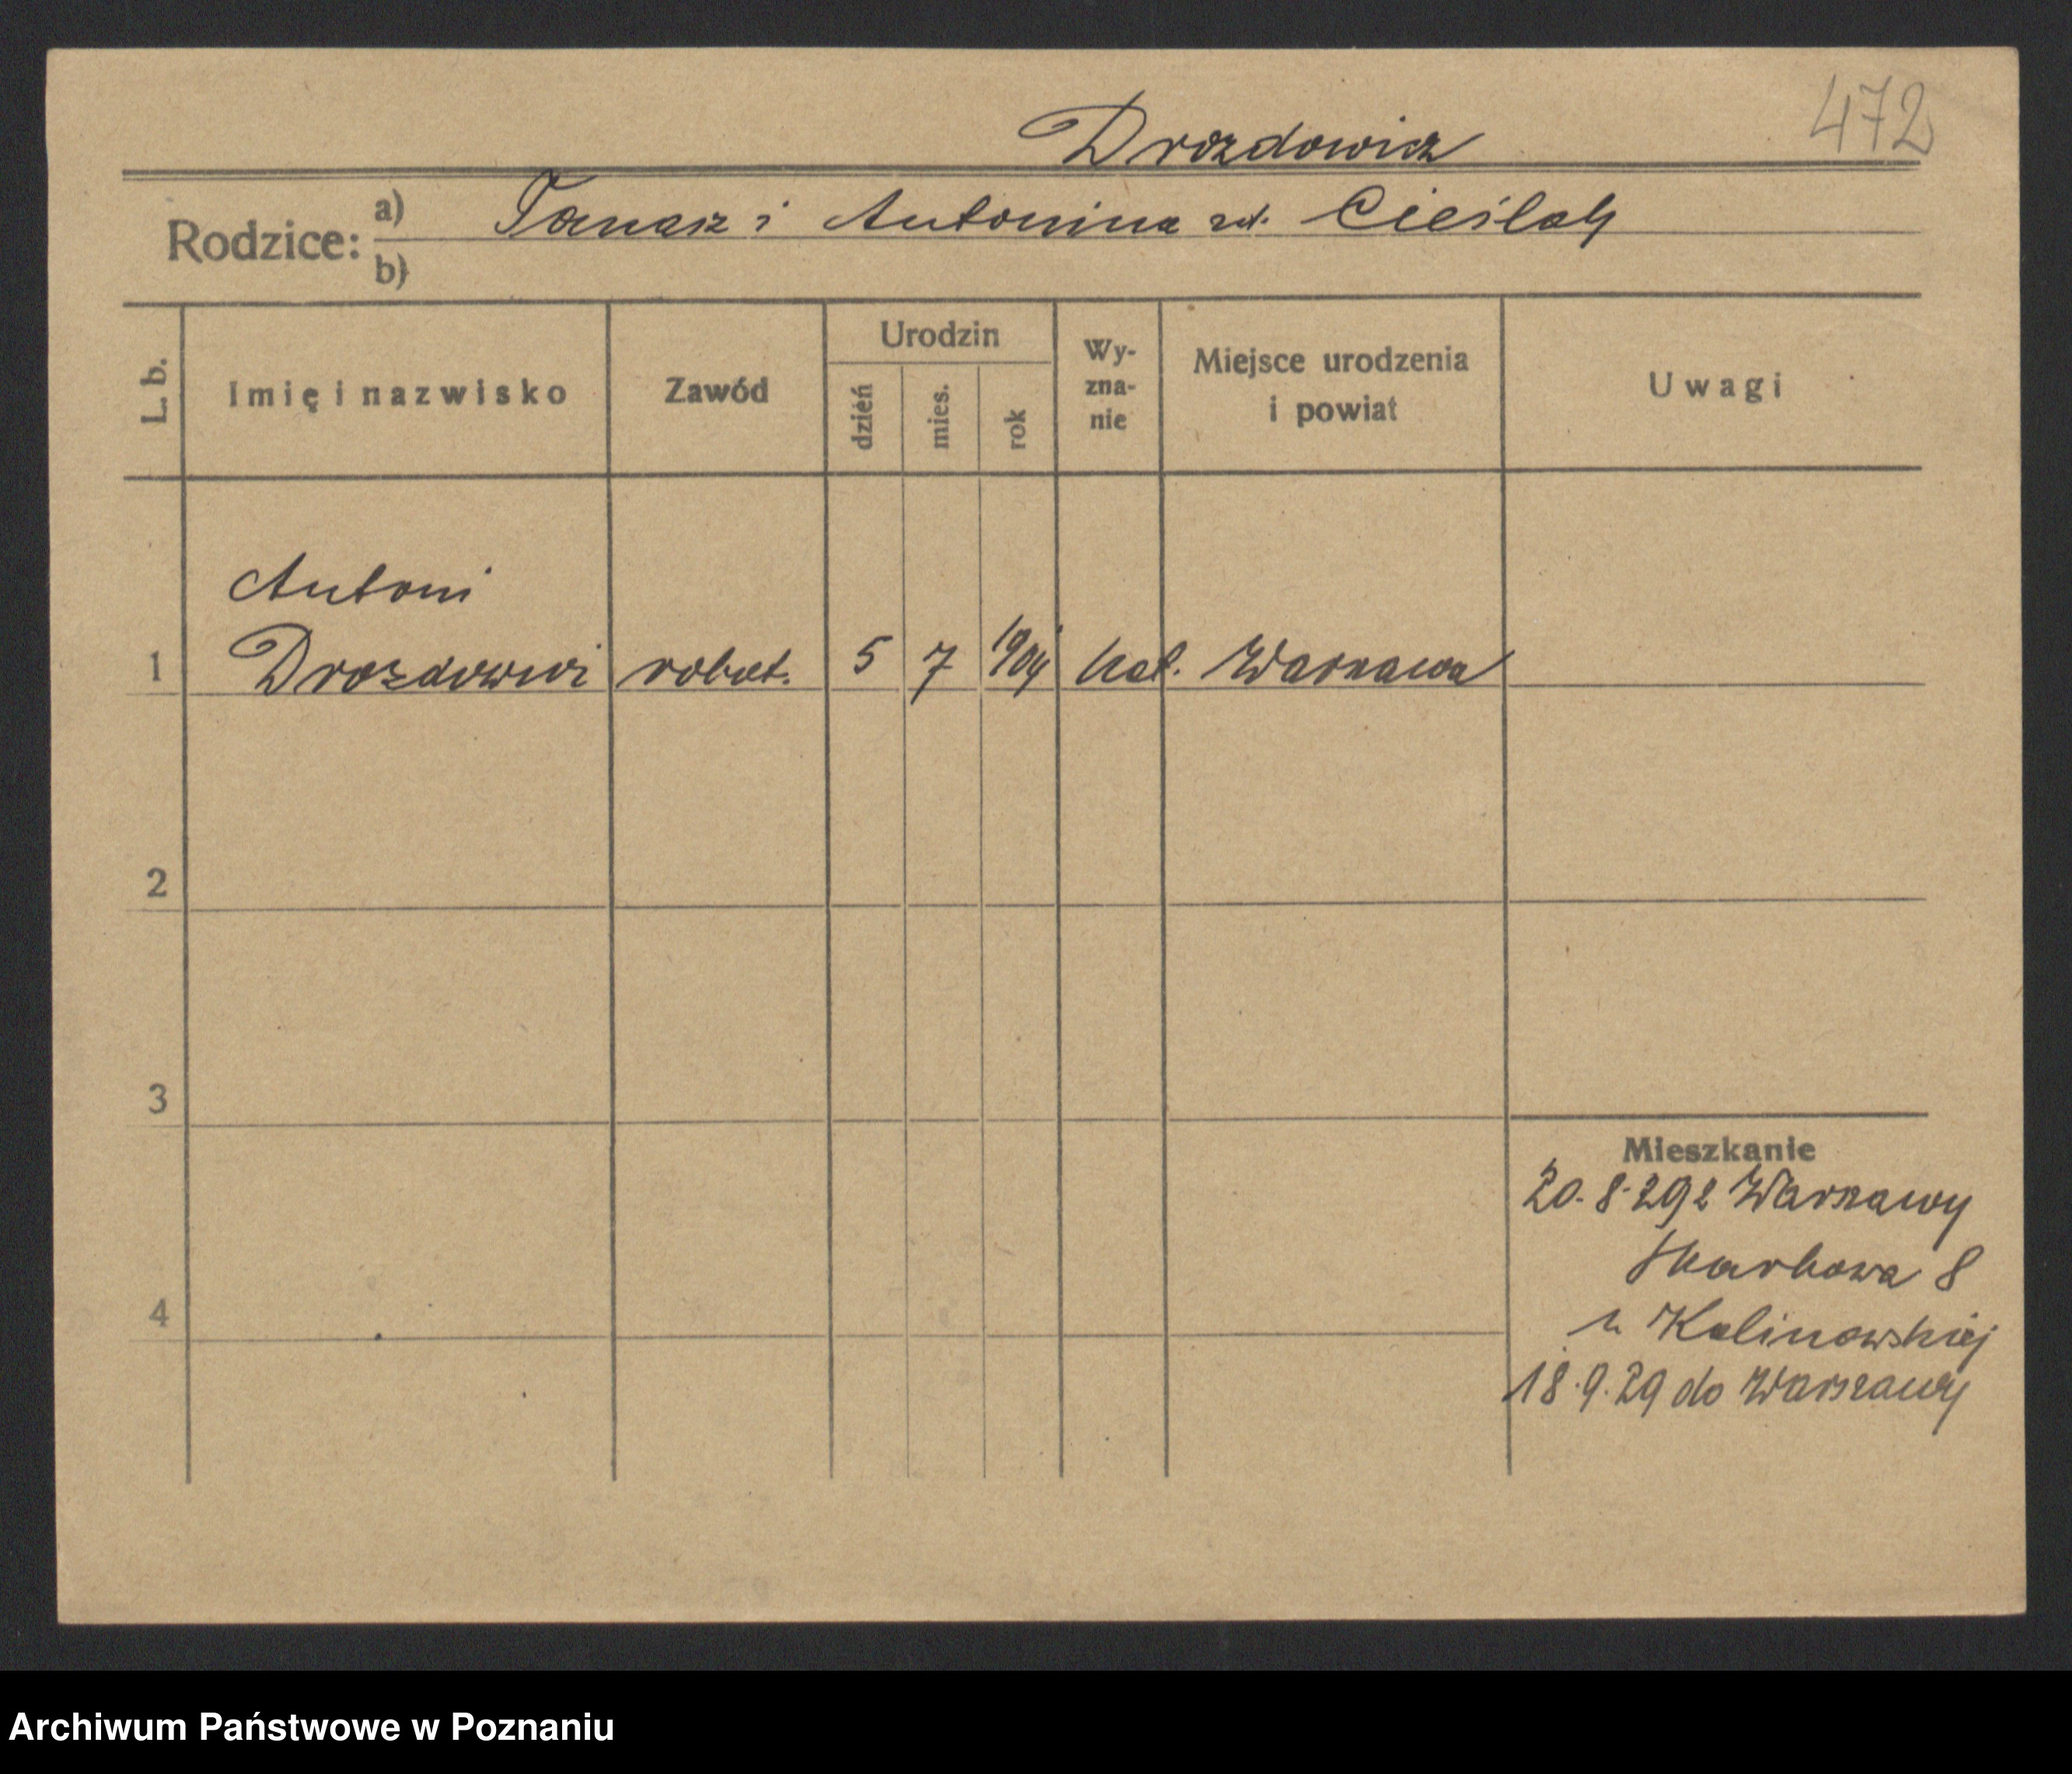 472
Drozdowicz
Rodzice: a) Tomasz i Antonina zd. Cieślak
b)
L. b. Imię i nazwisko Zawód Urodzin dzień mies. rok Wy-zna-nie Miejsce urodzenia i powiat Uwagi
Antoni
1 Drozdowicz robot. 5 7 1904 kat. Warszawa
2
3
Mieszkanie
20.8.29 z Warszawy
Skarbowa 8
4
u Kalinowskiej
18.9.29 do Warszawy
Archiwum Państwowe w Poznaniu